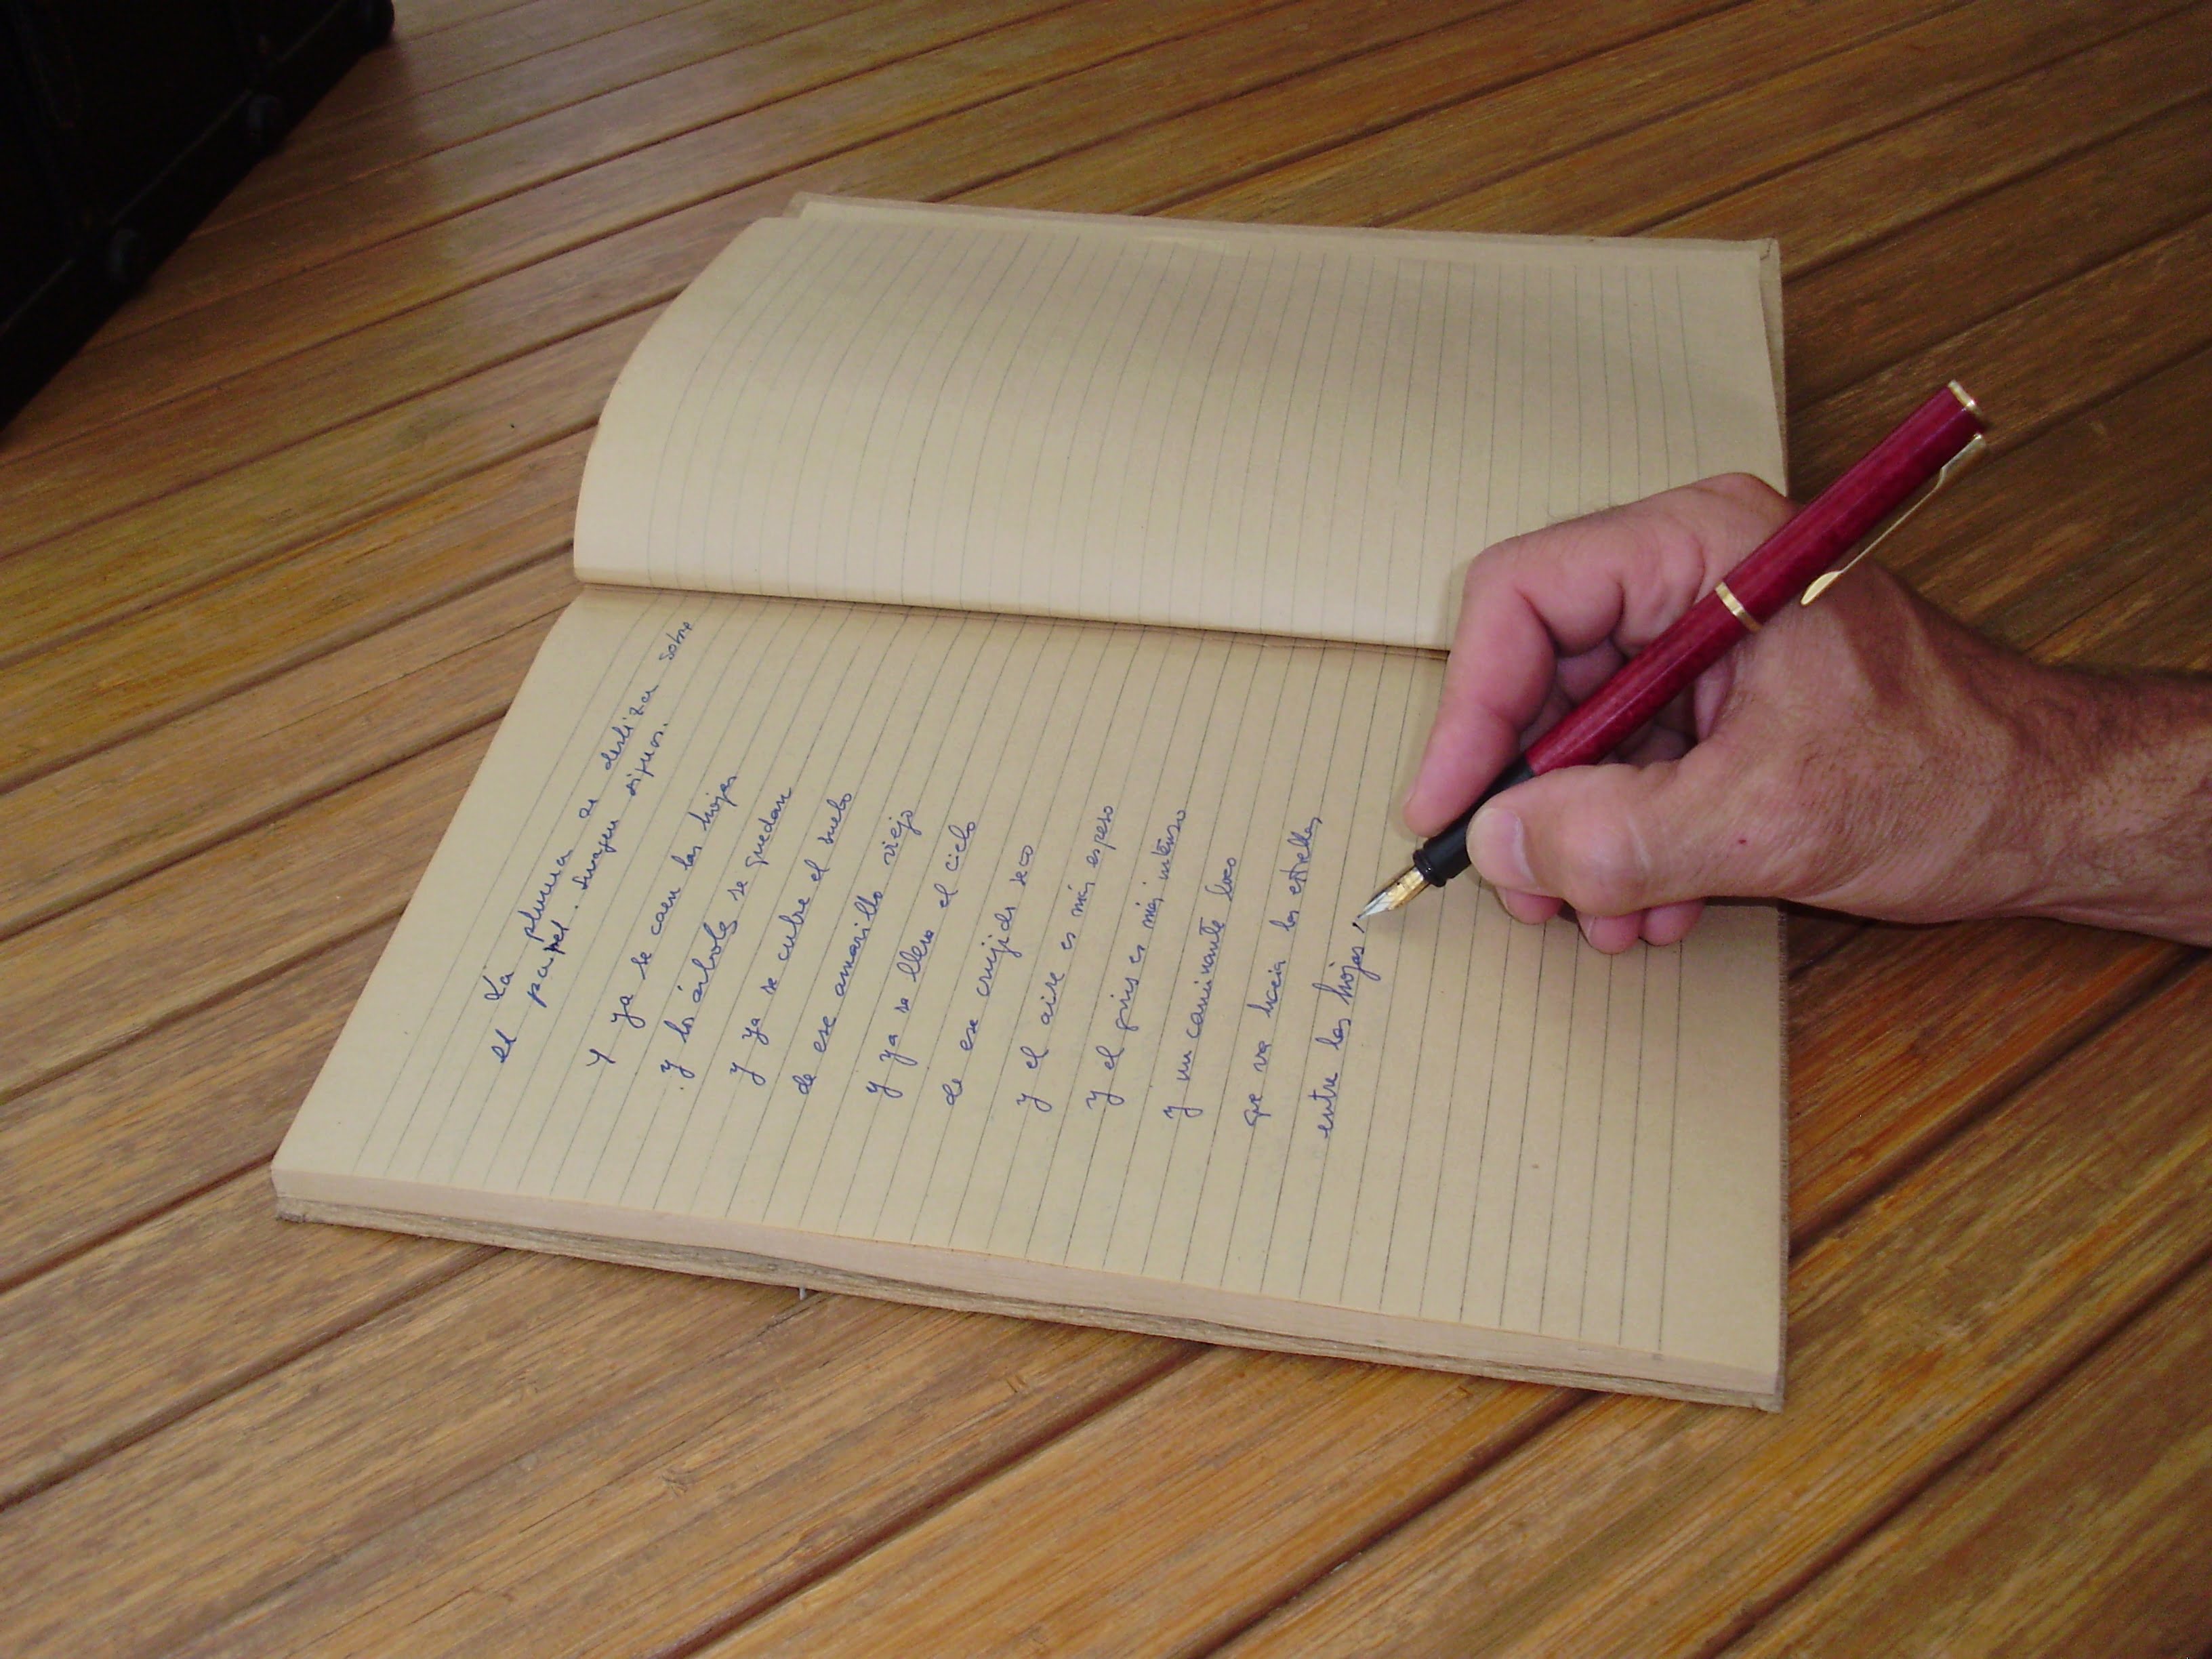 La pluma se desliza sobre
el papel. Surgen signos.
Y ya se caen las hojas
y los árboles se quedan
y ya se cubre el suelo
de ese amarillo viejo
y ya se llena el cielo
de ese crujido seco
y el aire es más espeso
y el gris es más intenso
y un caminante loco
que va hacia las estrellas
entre las hojas,